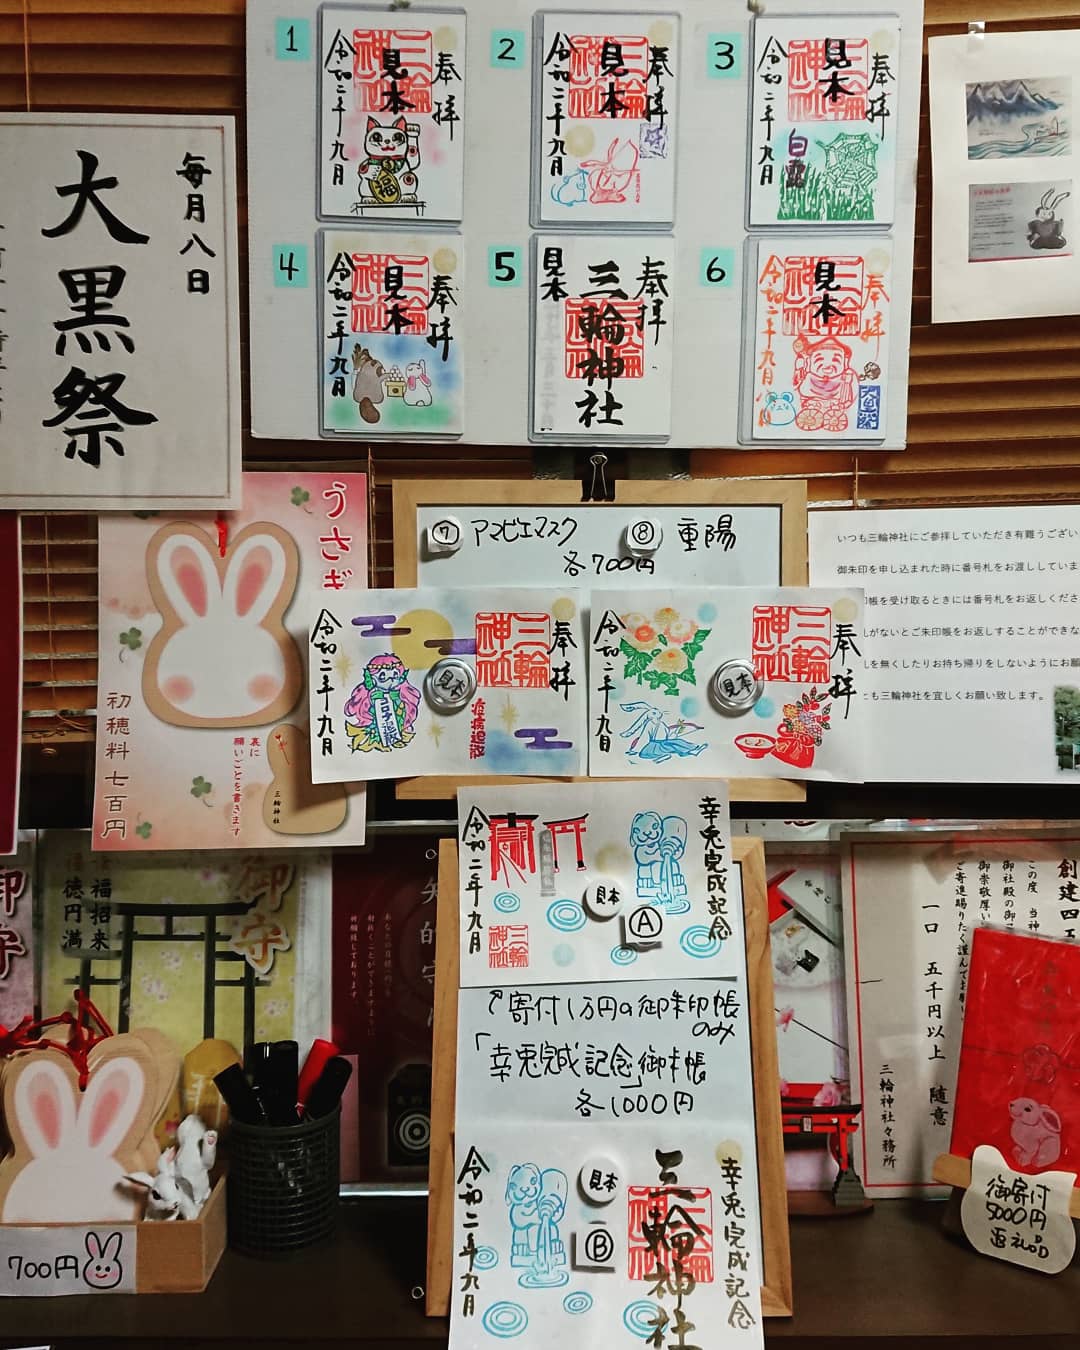 毎月八日
大黒祭
1
奉拝
三輪神社
見本
令和二年九月
福
2
奉拝
三輪神社
見本
令和二年九月
3
奉拝
三輪神社
見本
白露
令和二年九月
4
奉拝
三輪神社
見本
令和二年九月
5
奉拝
三輪神社
見本
6
奉拝
三輪神社
見本
令和二年九月
大黒祭
うさぎ
初穂料七百円
裏に
願いごとを書きます
三輪神社
⑦ アマビエマスク
⑧ 重陽
各700円
奉拝
三輪神社
見本
疫病退散
コロナ退散
令和二年九月
奉拝
三輪神社
見本
令和二年九月
いつも三輪神社にご参拝していただき有難うござい
御朱印を申し込まれた時に番号札をお渡ししていま
印帳を受け取るときには番号札をお返しくださ
札がないとご朱印帳をお返しすることができな
札を無くしたりお持ち帰りをしないようにお願
とも三輪神社を宜しくお願い致します。
幸兎完成記念
見本
A
三輪神社
令和二年九月
寄付1万円の御朱印帳
のみ
「幸兎完成記念」御朱印帳
各1000円
幸兎完成記念
三輪神社
見本
B
令和二年九月
御守
福招来
徳円満
御守
矢的守
700円
創建四
この度 当神
御社殿の御
御崇敬厚い
ご寄進賜りたく謹んでお願
一口 五千円以上 随意
三輪神社々務所
御寄付
5000円
返礼品